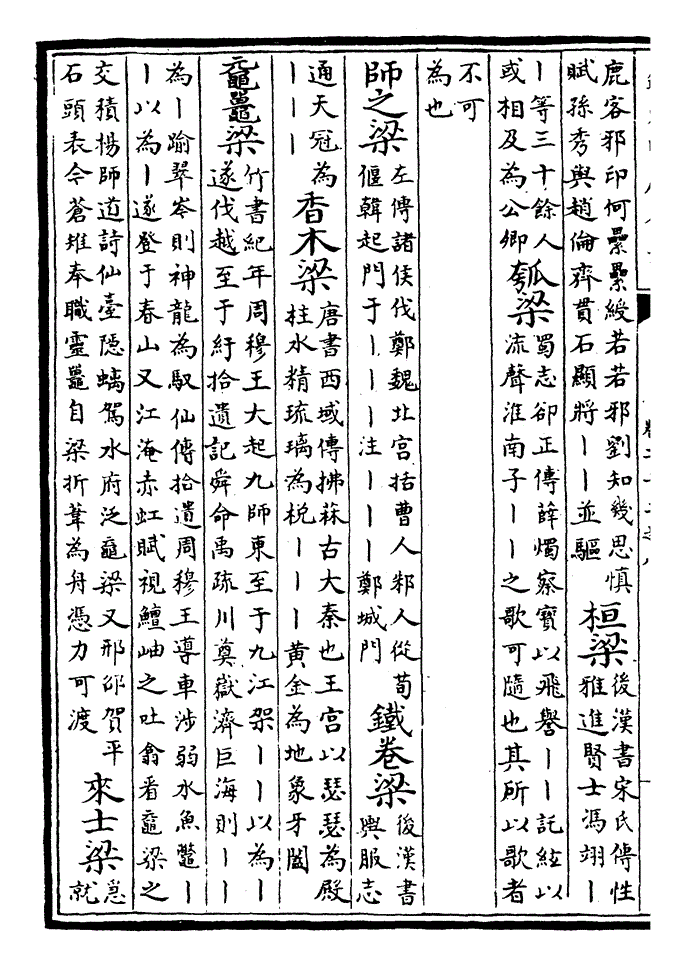 鹿客邪印何纍纍綬若若邪劉知幾思慎
賦孫秀與趙倫齊貫石顯將丨丨並驅
桓梁
後漢書宋氏傳性
雅進賢士馮翊丨
丨等三十餘人
或相及為公卿
瓠梁
蜀志卻正傳薛燭察寶以飛譽丨丨託絃以
流聲淮南子丨丨之歌可隨也其所以歌者
不可
為也
師之梁
左傳諸侯伐鄭魏北宮括曹人邾人從荀
偃韓起門于丨丨丨注丨丨丨鄭城門
鐵卷梁
後漢書
輿服志
通天冠為
丨丨丨
香木梁
唐書西域傳拂菻古大秦也王宮以瑟瑟為殿
柱水精琉璃為梲丨丨丨黃金為地象牙闔
黿鼉梁
竹書紀年周穆王大起九師東至于九江架丨丨以為丨
遂伐越至于紆拾遺記舜命禹疏川奠嶽濟巨海則丨丨
為丨踰翠岑則神龍為馭仙傳拾遺周穆王導車涉弱水魚鼈丨
丨以為丨遂登于春山又江淹赤虹賦視鱣岫之吐翕看黿梁之
交積楊師道詩仙臺隱螭駕水府泛黿梁又邢邵賀平
石頭表今蒼雉奉職靈鼉自梁折葦為舟憑力可渡
來士梁
急
就